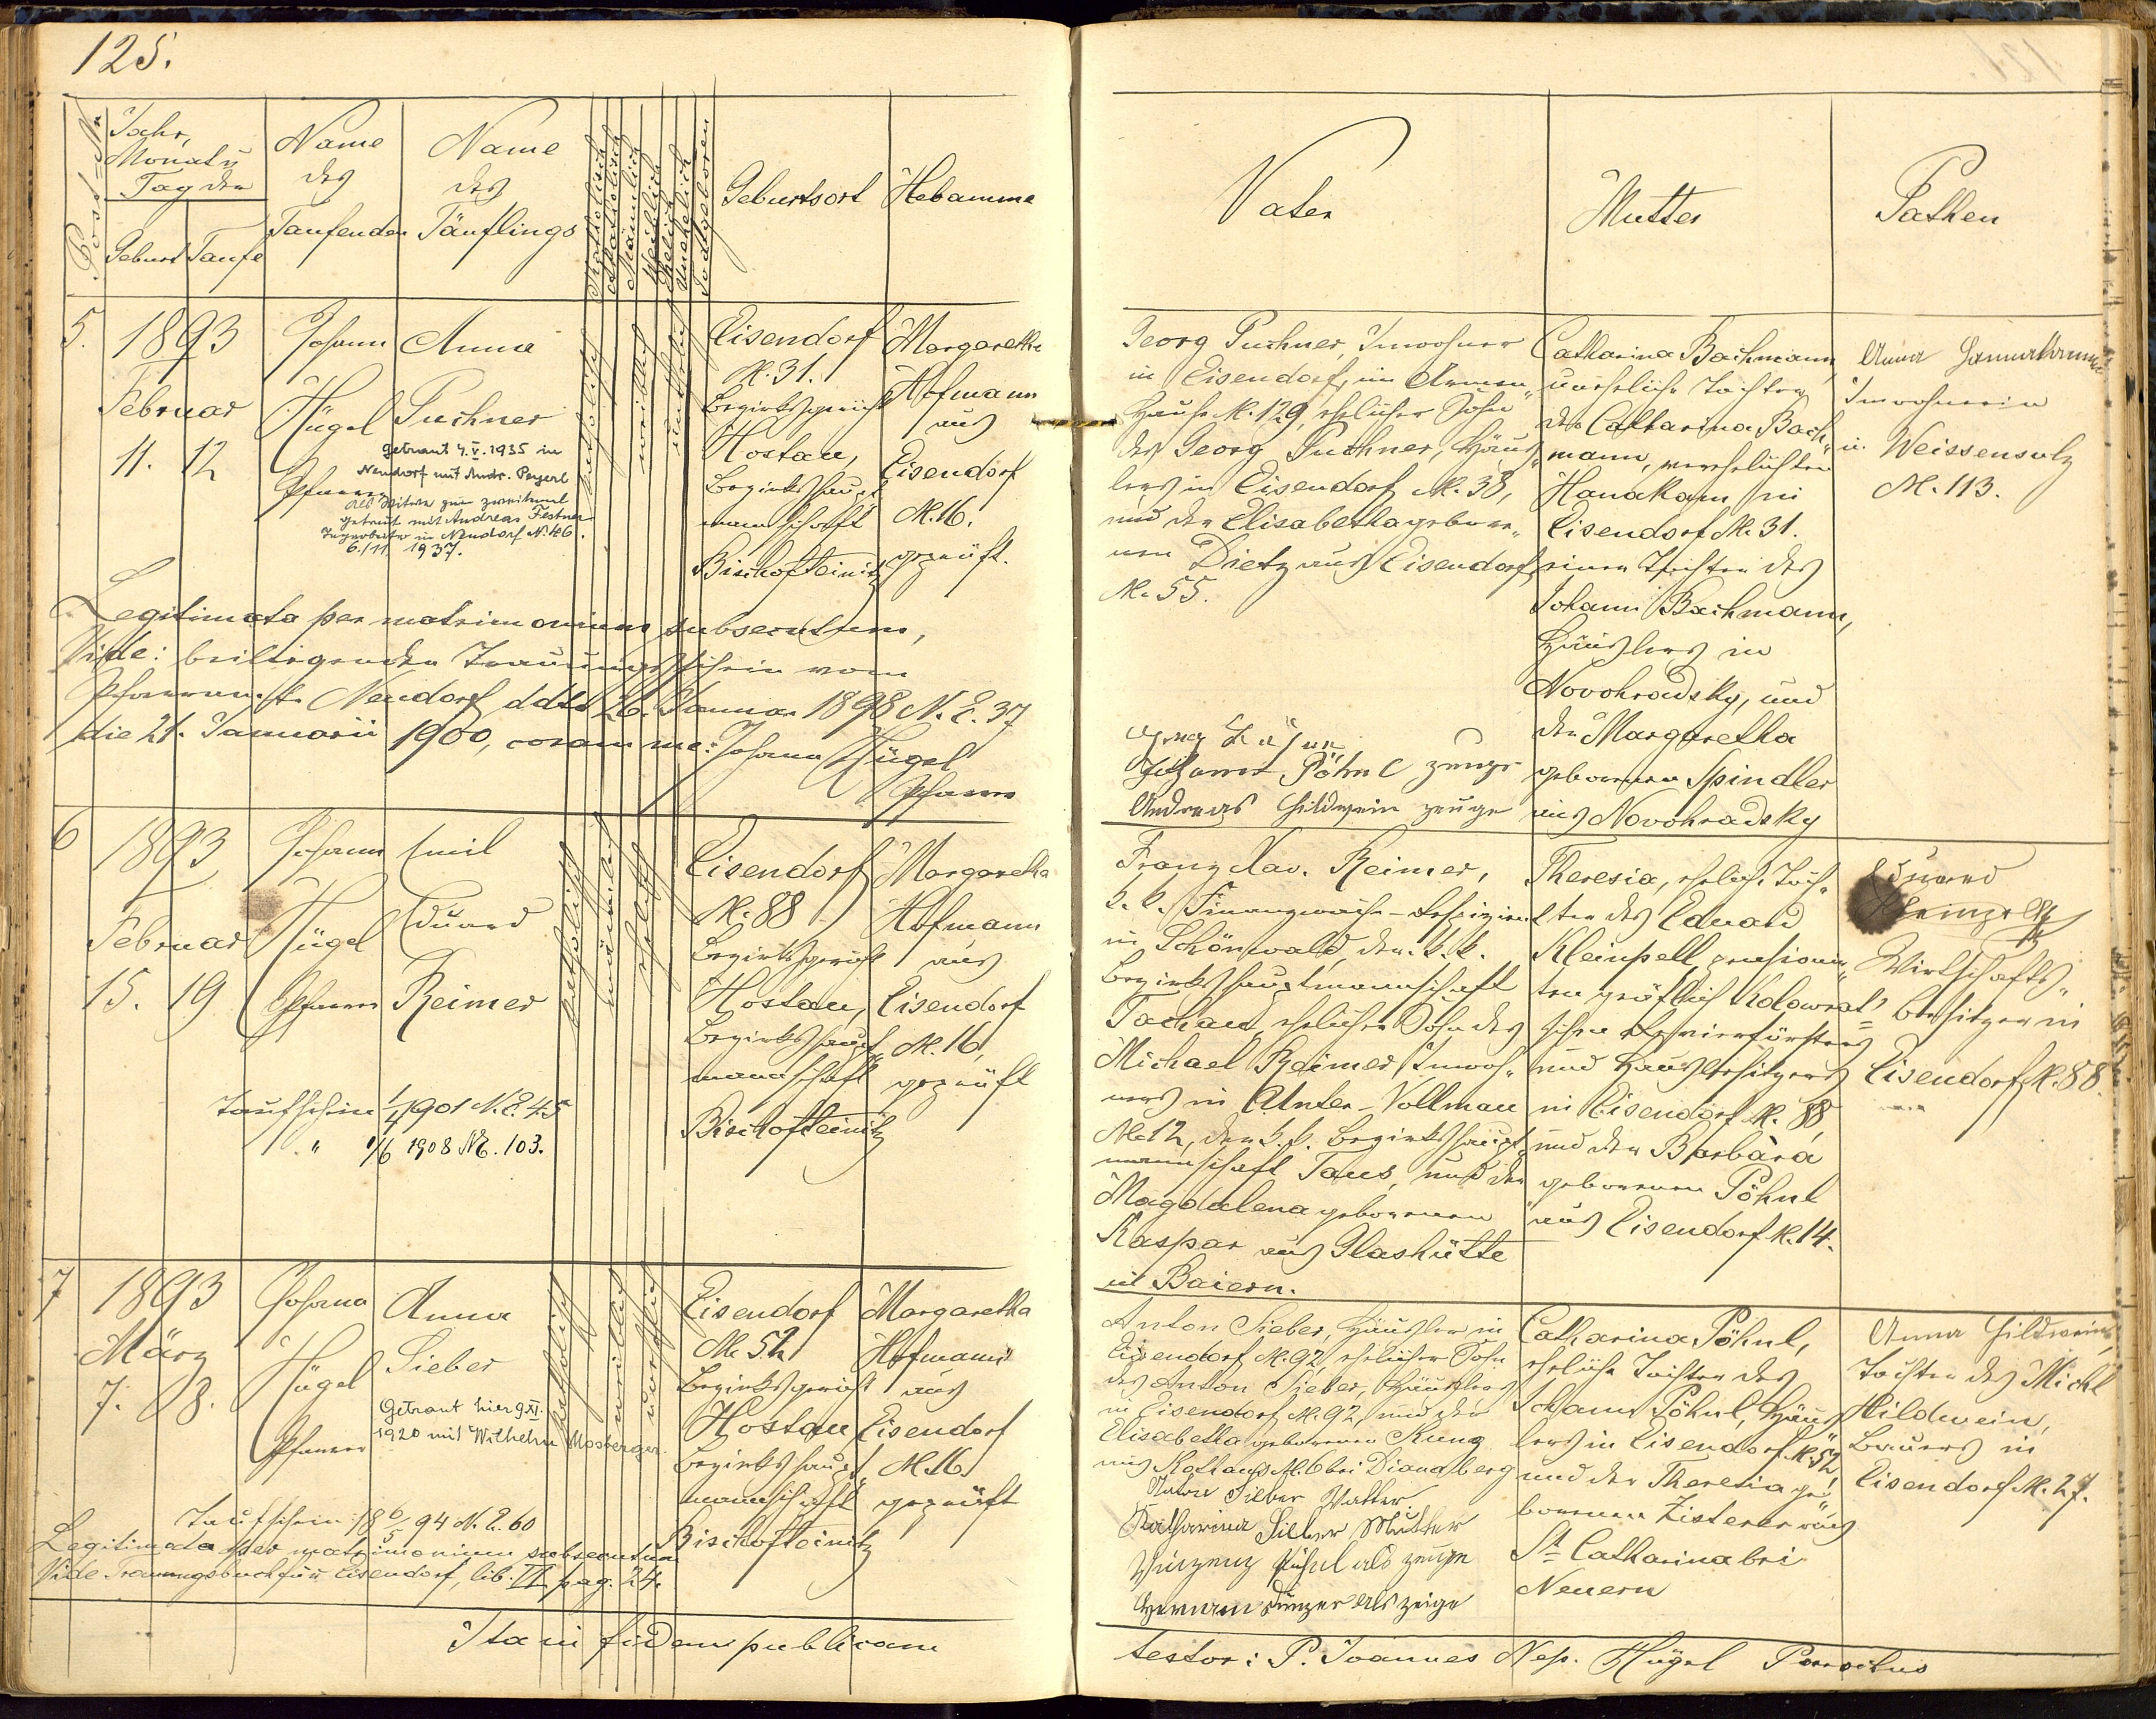 125.
Post-Nr
Jahr,
Monat u
Tag der
Geburt Taufe
Name
des
Taufenden
Name
des
Täuflings
Katholisch
Akatholisch
Männlich
Weiblich
Ehelich
Unehelich
Todtgeboren
Geburtsort
Hebamme
Vater
Mutter
Pathen
5.
1893
Februar
11. 12
Johann
Hügel
Pfarrer
Anna
Puchner
getraut 4.V.1935 in
Neudorf mit Andr. Peyerl
Als Witwe zum zweitenmal
getraut mit Andreas Festner
in Neudorf N. 106.
6./11. 1937.
katholisch
weiblich
unehelich
Eisendorf
N. 31.
Bezirksgericht
Hostau,
Bezirkshaupt„
mannschaft
Bischofteinitz
Margaretha
Hofmann
aus
Eisendorf
N. 16.
geprüft.
Legitimata per matrimonium subsecutum,
Vide: beiliegenden Trauungsschein vom
Pfarramte Neudorf ddto 26. Januar 1898 N. E. 37
die 21. Januarii 1900, coram me: Johann Hügel
Pfarrer
Georg Puchner, Inwohner
in Eisendorf, im Armen„
hause N. 129, ehelicher Sohn
des Georg Puchner, Häus„
lers in Eisendorf N. 38,
und der Elisabetha gebore„
nen Dietz aus Eisendorf
N. 55.
Johann Pöhnl zeuge
Andreas Hildwein zeuge
Catharina Bachmann,
uneheliche Tochter
der Catharina Bach„
mann, verehelichten
Hanakam in
Eisendorf N. 31.
einer Tochter des
Johann Bachmann,
Häuslers in
Novohradsky, und
der Margaretha
gebornen Spindler
aus Novohradsky
Anna
Inwohnerin
in Weissensulz
N. 113.
6
1893
Februar
15. 19
Johann
Hügel
Pfarrer
Emil
Eduard
Reimer
katholisch
männlich
ehelich
Taufschein 1/4 1901 N. E. 45
" 1/6 1908 N. E. 103.
Eisendorf
N. 88
Bezirksgericht
Hostau,
Bezirkshaupt„
mannschaft
Bischofteinitz
Margaretha
Hofmann
aus
Eisendorf
N. 16,
geprüft
Franz Xav. Reimer,
k. k. Finanzwach-Respizient
in Schönwald, der k. k.
Bezirkshauptmannschaft
Tachau, ehelicher Sohn des
Michael Reimer Inwoh„
ners in Unter-Vollmau
N. 12, der k. k. Bezirkshaupt„
mannschaft Taus, und der
Magdalena gebornen
Kaspar aus Glashütte
in Baiern.
Theresia, eheliche Toch„
ter des Eduard
Kleinpell pensionir„
ten gräflich Kolowrat'
schen Revierförsters
und Hausbesitzers
in Eisendorf N. 88
und der Barbara
gebornen Pöhnl
aus Eisendorf N. 14.
Eduard
Wirtschafts„
besitzer in
Eisendorf N. 88.
7
1893
März
7. 8.
Johann
Hügel
Pfarrer
Anna
Sieber
Getraut hier 9.XI.
1920 mit Wilhelm Mosberger.
katholisch
weiblich
unehelich
Eisendorf
N. 52
Bezirksgericht
Hostau
Bezirkshaupt„
mannschaft
Bischofteinitz
Margaretha
Hofmann
aus
Eisendorf
N. 16.
geprüft
Taufschein 18 6/5 94 N. E. 60
Legitimata per matrimonium subsecutum
Vide Trauungsbuch für Eisendorf, lib. II. pag. 24.
Anton Sieber, Häusler in
Eisendorf N. 92, ehelicher Sohn
des Anton Sieber, Häuslers
in Eisendorf N. 92, und der
Elisabetha gebornen Kunz
aus N. 6 bei Dianaberg
Anton Sieber Vatter.
Katharina Sieber Mutter
Vinzenz Pöhnl als zeuge
Herman als zeige
Catharina Pöhnl,
eheliche Tochter des
Johann Pöhnl, Häus„
lers in Eisendorf N. 52,
und der Theresia ge„
bornen Zisterer aus
St. Catharina bei
Neuern
Anna Hildwein,
Tochter des Michl
Hildwein,
Bauers in
Eisendorf N. 27.
Ita in fidem publicam
testor: P. Joannes Nep. Hügel Parochus